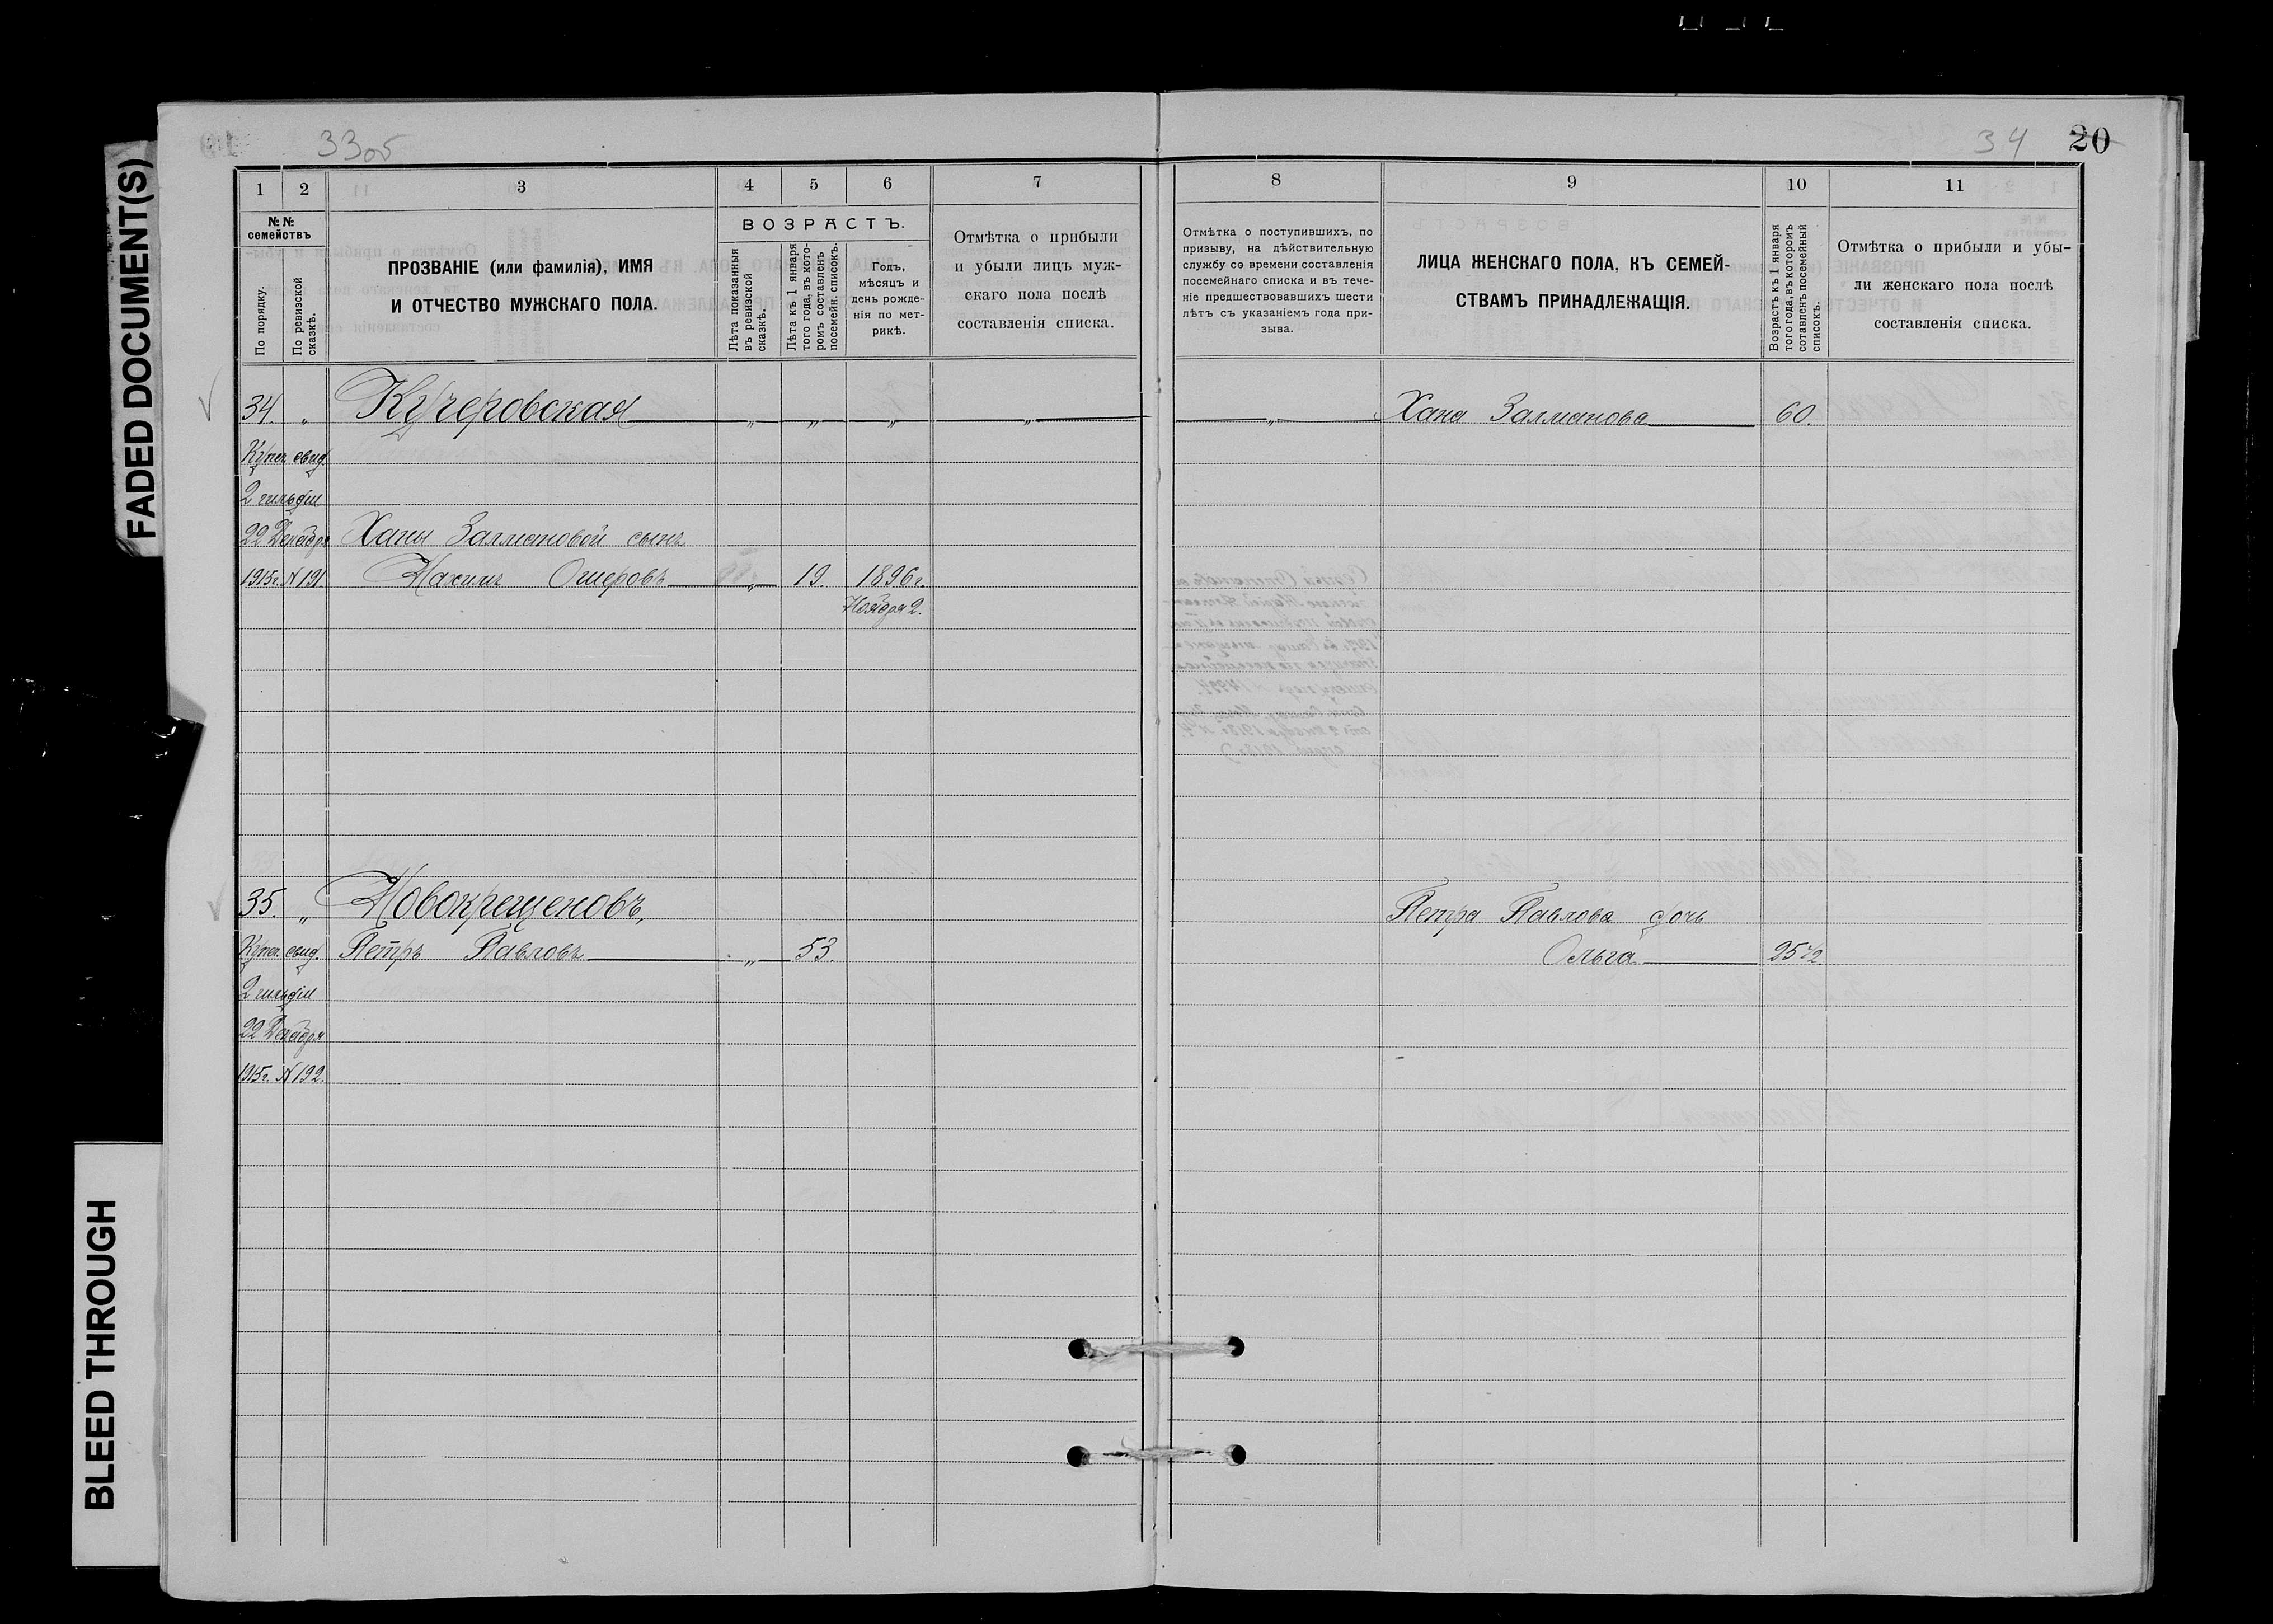 FADED DOCUMENT(S)
BLEED THROUGH
33об
34 20
1 2 3 4 5 6 7
8 9 10 11
№№ семействъ
По порядку.
По ревизской сказкѣ.
ПРОЗВАНІЕ (или фамилія), ИМЯ
И ОТЧЕСТВО МУЖСКАГО ПОЛА.
ВОЗРАСТЪ.
Лѣта показанныя
въ ревизской
сказкѣ.
Лѣта къ 1 января
того года, въ кото-
ромъ составленъ
посемейн. списокъ.
Годъ,
мѣсяцъ и
день рожде-
нія по мет-
рикѣ.
Отмѣтка о прибыли
и убыли лицъ муж-
скаго пола послѣ
составленія списка.
Отмѣтка о поступившихъ, по
призыву, на дѣйствительную
службу со времени составленія
посемейнаго списка и въ тече-
ніе предшествовавшихъ шести
лѣтъ съ указаніемъ года при-
зыва.
ЛИЦА ЖЕНСКАГО ПОЛА, КЪ СЕМЕЙ-
СТВАМЪ ПРИНАДЛЕЖАЩІЯ.
Возрастъ къ 1 января
того года, въ которомъ
составленъ посемейный
списокъ.
Отмѣтка о прибыли и убы-
ли женскаго пола послѣ
составленія списка.
34. „ Кучеровская „ „ „ „ „ Хана Залманова 60.
Купеч. свид.
2 гильдіи
22 Декабря Ханы Залмановой сынъ
1915г. N 191 Нахимъ Ошеровъ „ 19. 1896г.
Ноября 2.
35. „ Новокрещеновъ, Петра Павлова дочь
Купеч. свид. Петръ Павловъ „ 53. Ольга 25 1/2
2 гильдіи
22 Декабря
1915г. N 192.